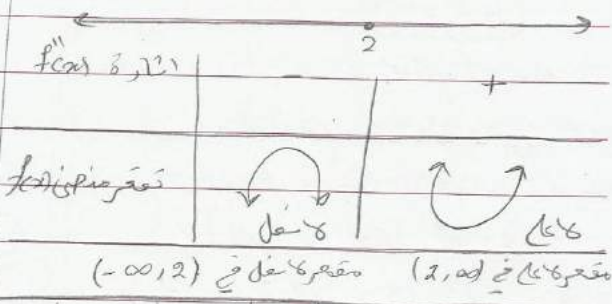 2
إشارة f''(x) - +
تقعر منحنى f(x)
لأسفل لأعلى
مقعر لأسفل في (-∞, 2) مقعر لأعلى في (2, ∞)